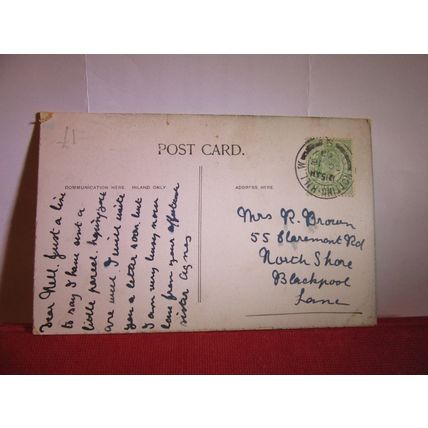 £1
POST CARD.
COMMUNICATION HERE. INLAND ONLY
ADDRESS HERE.
NOTTING-HILL. W
Dear Nell Just a line
to say I have sent a
little parcel. hoping you
are well I will write
you a letter soon but
I am very busy now
love from your affectionate
sister Agnes
Mrs R. Brown
55 Claremont Rd
North Shore
Blackpool
Lancs